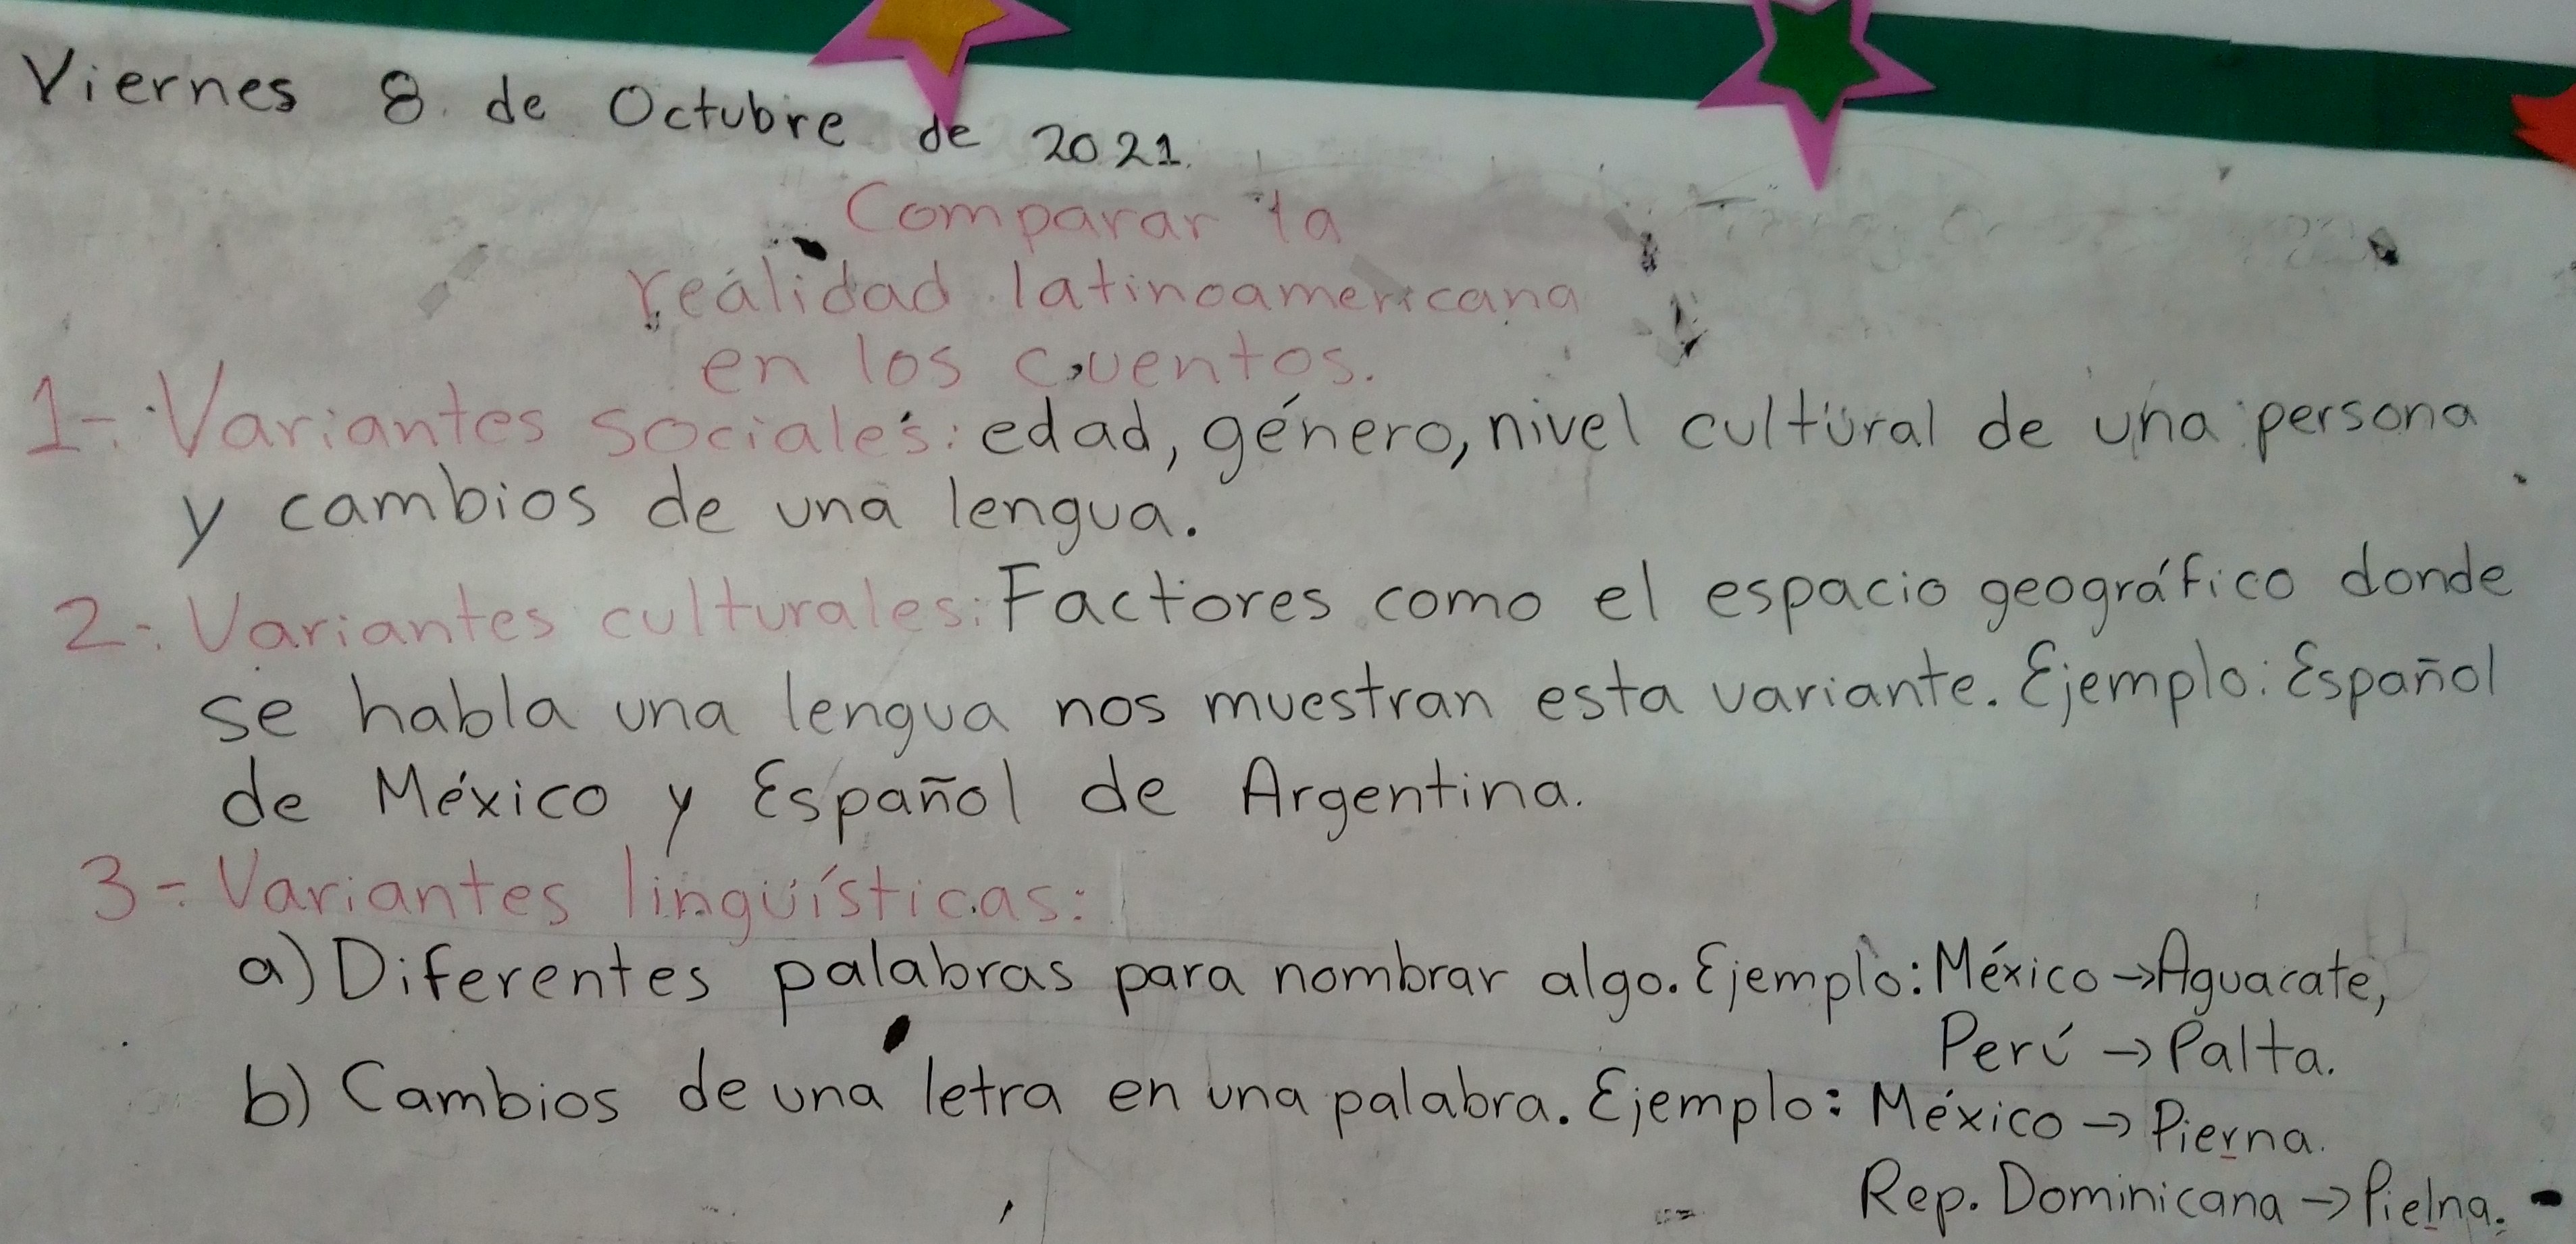 Viernes 8 de Octubre de 2021.
Comparar la
realidad latinoamericana
en los cuentos.
1-. Variantes sociales: edad, género, nivel cultural de una persona
y cambios de una lengua.
2-. Variantes culturales: Factores como el espacio geográfico donde
se habla una lengua nos muestran esta variante. Ejemplo: Español
de México y Español de Argentina.
3-. Variantes lingüísticas:
a) Diferentes palabras para nombrar algo. Ejemplo: México → Aguacate,
Perú → Palta.
b) Cambios de una letra en una palabra. Ejemplo: México → Pierna.
Rep. Dominicana → Pielna.